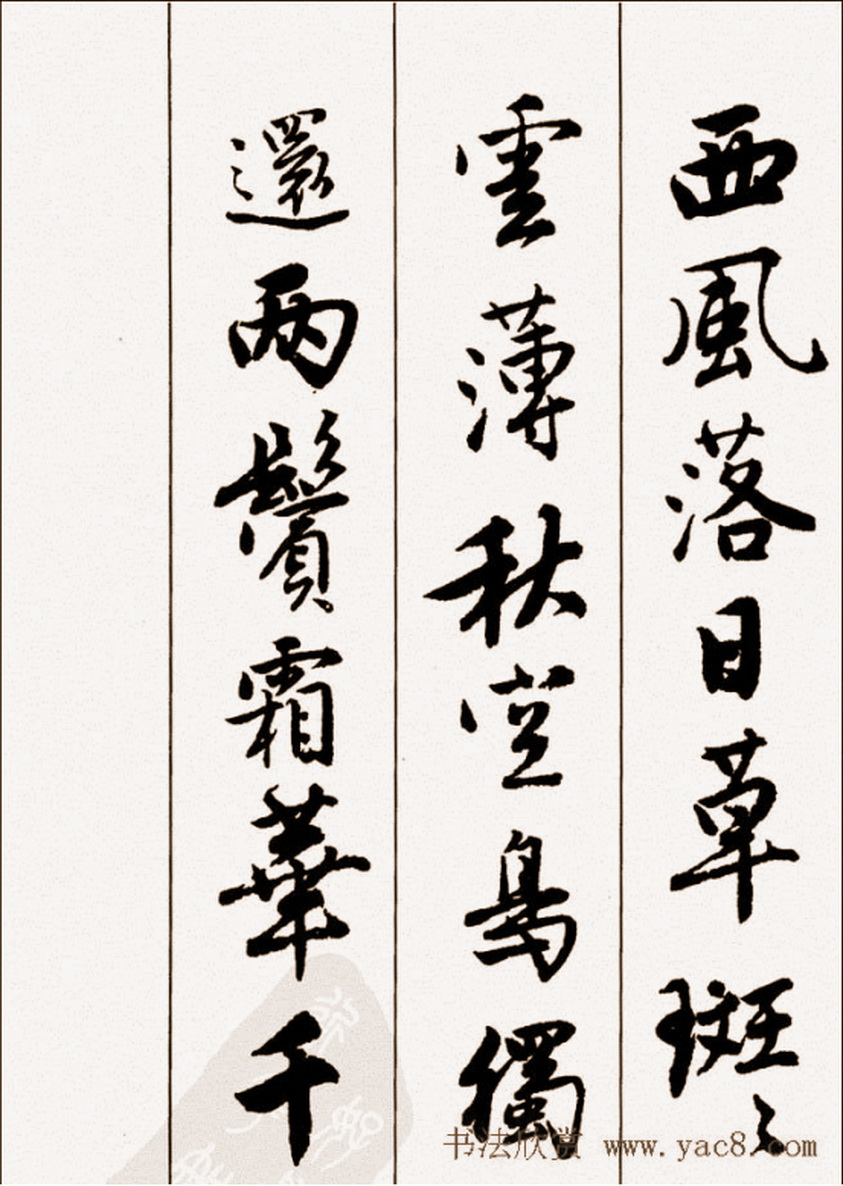 西風落日草斑〻
雲薄秋空鳥獨
還兩鬢霜華千
书法欣赏 www.yac8.com